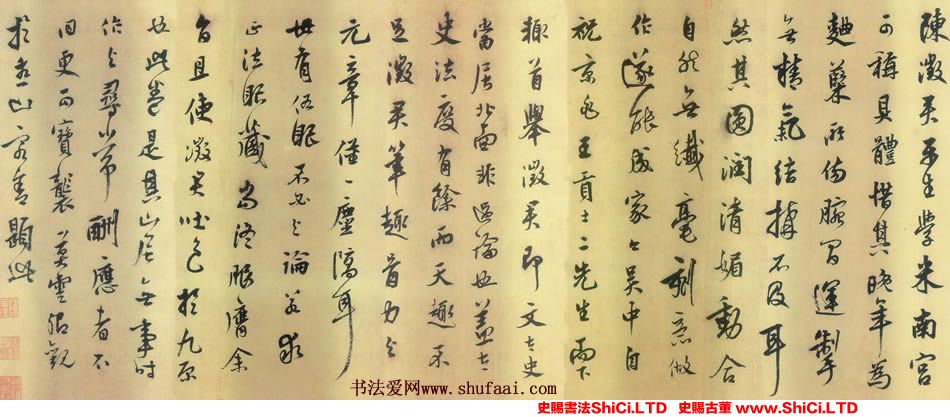 陳澂君平生學米南宮
可稱具體惜其晚年為
麯蘖所傷腕間運掣
無精氣結搆不及耳
然其圓潤清媚動合
自然無纖毫刻意做
作遂能成家吳中自
祝京兆王貢士二先生而下
輒首舉澂君即文太史
當居北面非過論也蓋太
史法度有餘而天趣不
足澂君筆趣骨力與
元章僅一塵隔耳
世有俗眼不必與論若求
正法眼藏尚須服膺余
言且使澂君吐色於九原
也此卷是其山居無事時
作與尋常酬應者不
同更可寶襲莫雲卿觀
於山題此
书法爱网www.shufaai.com
史賜書法ShiCi.LTD 史賜古董 www.ShiCi.LTD